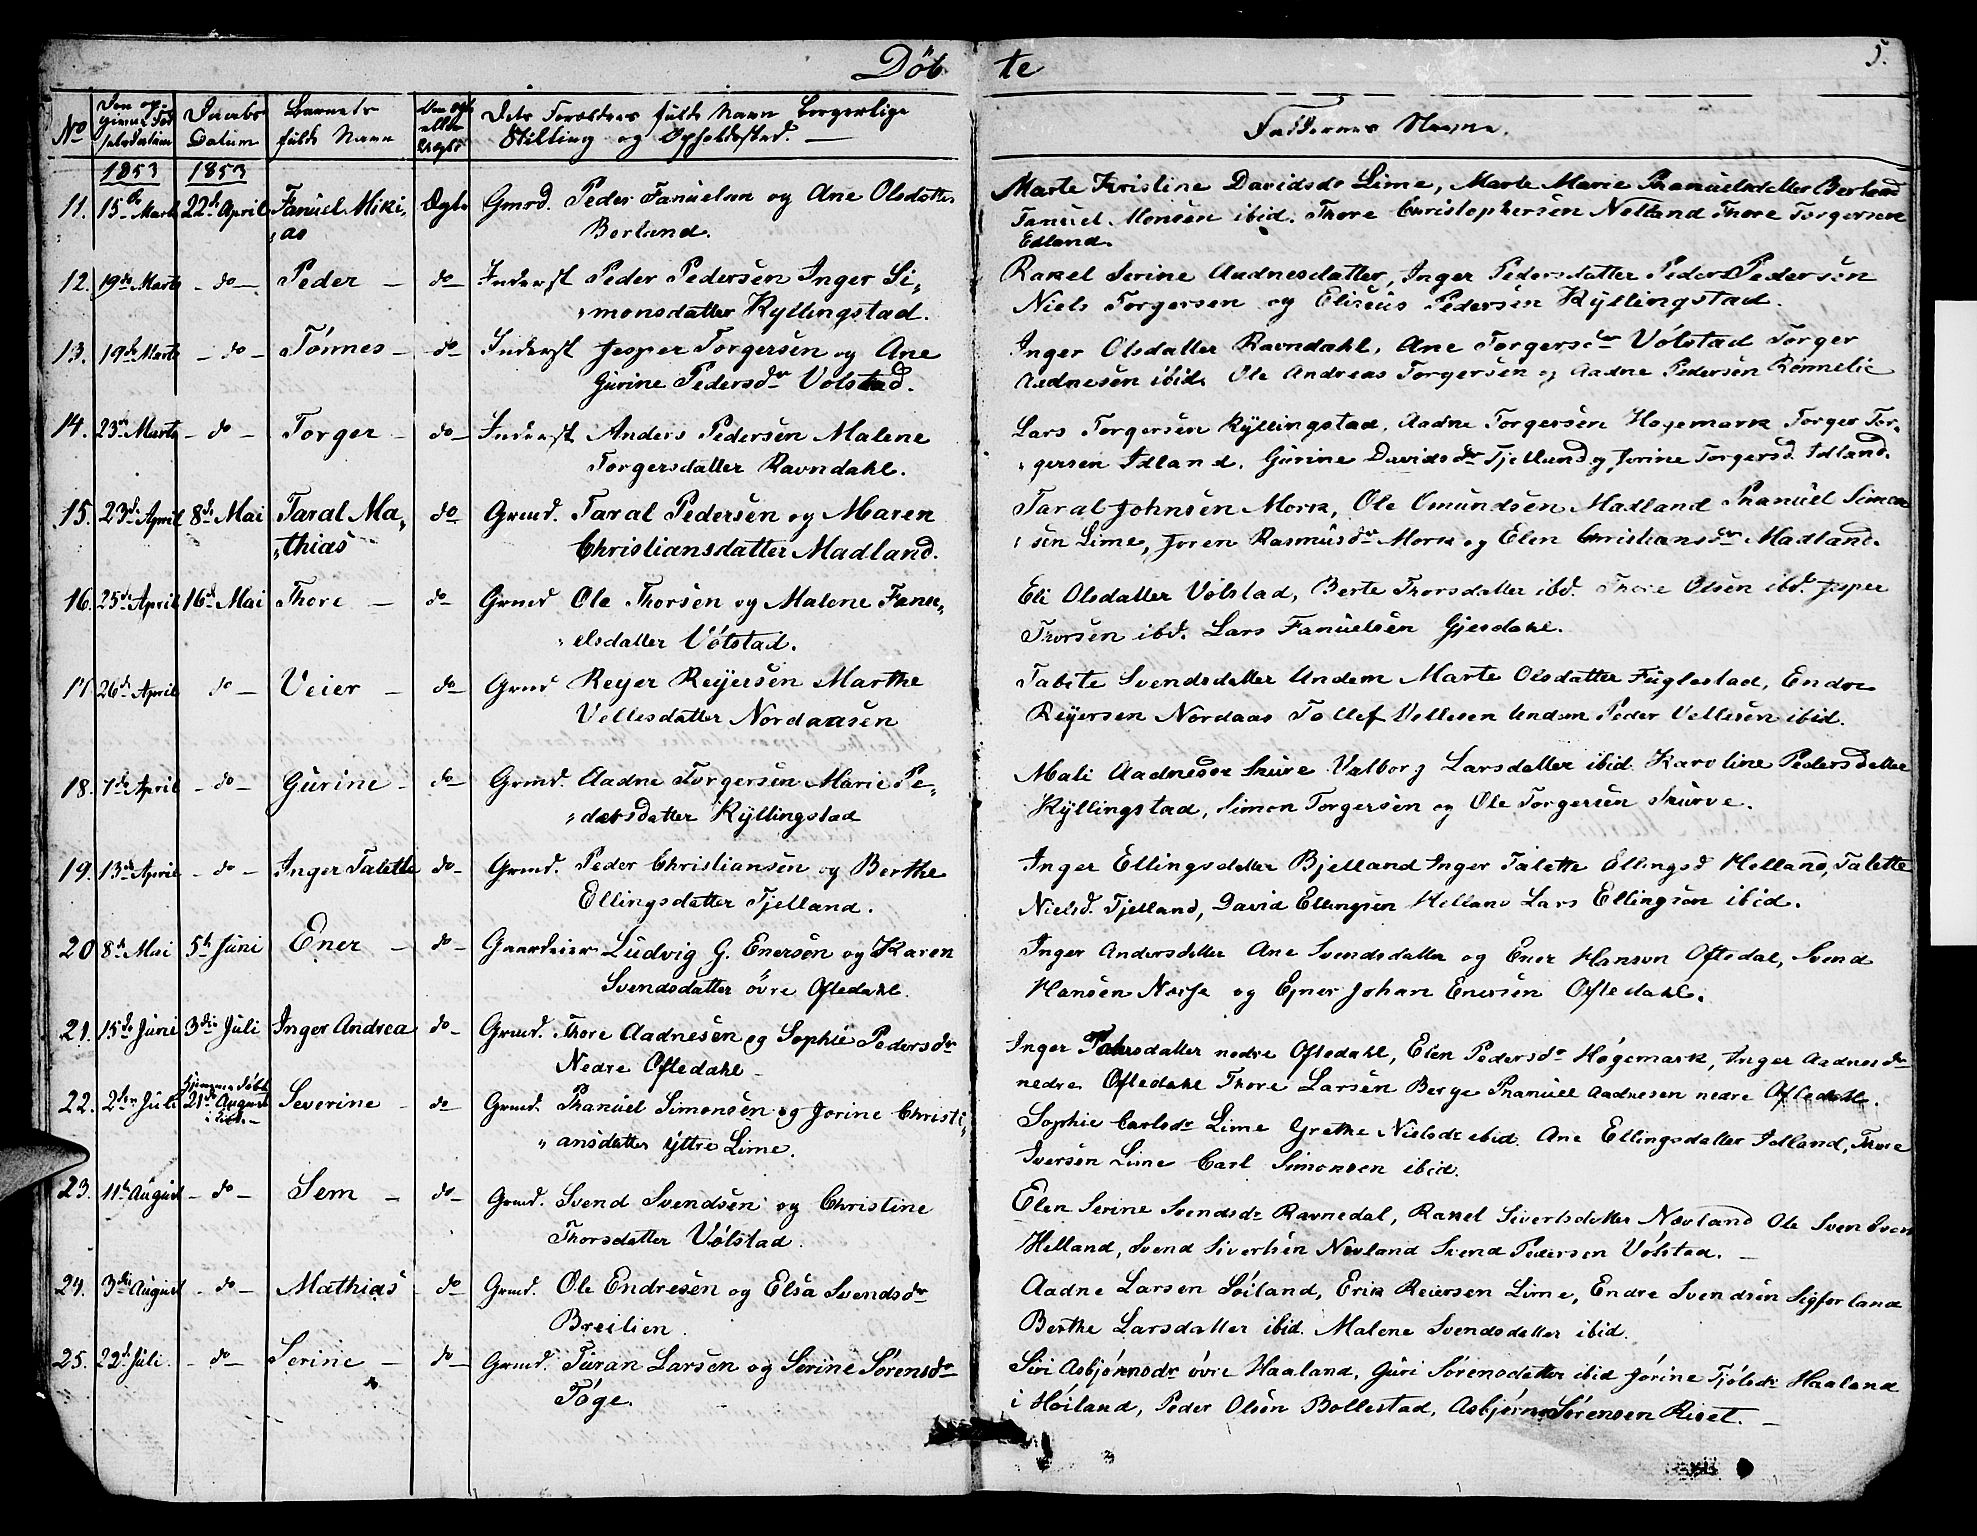 Döb te 5.
No Den op- givne Fød- selsdatum Daabs Datum Barnets fulde Navn Om ægte eller Uægte Dets Forældres fulde Navn borgerlige Stilling og Opholdssted. Faddernes Navne.
1853 1853
11. 15de Marts 22de April Fanuel Miki- Ægte Gmrd. Peder Fanuelsen og Ane Olsdatter Marte Kristine Davidsdr Lime, Marte Marie Phanuelsdatter Berland
as Berland. Fanuel Monsen ibid. Thore Christophersen Netland Thore Torgersen
Edland.
12. 19de Marts - do - Peder - do Inderst Peder Pedersen Inger Si- Rakel Serine Aadnesdatter, Inger Pedersdatter Peder Pedersen
monsdatter Kyllingstad. Niels Torgersen og Eliseus Pedersen Kyllingstad.
13. 19de Marts - do - Tönnes - do Inderst Jesper Torgersen og Ane Inger Olsdatter Ravndahl, Ane Torgersdr Völstad Torger
Gurine Pedersdr Volstad. Aadnesen ibid. Ole Andreas Torgersen og Aadne Pedersen Rönnelie
14. 23de Marts - do - Torger - do Inderst Anders Pedersen Malene Lars Torgersen Kyllingstad, Aadne Torgersen Högemark Torger Tor-
Torgersdatter Ravndahl. gersen Idland. Gurine Davidsdr Tjelland og Jorine Torgersd. Idland.
15. 23de April 8de Mai Taral Ma- do Grmd. Taral Pedersen og Maren Taral Johnsen Mork, Ole Omundsen Madland Phanuel Simon
thias Christiansdatter Madland. sen Lime, Joren Rasmusdr Mork og Elen Christiansdr Madland.
16. 25de April 16de Mai Thore - do Grmd Ole Thorsen og Malene Fanu- Eli Olsdatter Völstad, Berte Thorsdatter ibd. Thore Olsen ibd. Jesper
elsdatter Völstad. Thorsen ibd. Lars Fanuelsen Gjesdahl.
17 26de April do - Veier - do Grmd Reyer Reyersen Marthe Tabite Svendsdatter Undem Marte Olsdatter Fuglestad, Endre
Vellesdatter Nordaasen Reyersen Nordaas Tollef Vellesen Undem Peder Vellesen ibid.
18. 7de April - do - Gurine - do Grmd. Aadne Torgersen Marie Pe- Mali Aadnesdr Skurve Valborg Larsdatter ibid. Karoline Pedersdatter
dersdatter Kyllingstad Kyllingstad, Simon Torgersen og Ole Torgersen Skurve.
19. 13de April - do - Inger Talette do Grmd. Peder Christiansen og Berthe Inger Ellingsdatter Bjelland Inger Talette Ellingsd Helland, Talette
Ellingsdatter Tjelland. Nielsd. Tjelland, David Ellingsen Helland Lars Ellingsen ibid.
20 8de Mai 5te Juni Ener - do Gaardeier Ludvig G. Enersen og Karen Inger Andersdatter Ane Svendsdatter og Ener Hansen Oftedal, Svend
Svendsdatter övre Oftedahl. Hansen og Ejner Johan Enersen Oftedahl.
21. 15de Juni 3die Juli Inger Andrea do Grmd. Thore Aadnesen og Sophie Pedersdr Inger nedre Oftedahl, Elen Pedersdr Högemark, Inger Aadnesdr
Nedre Oftedahl - nedre Oftedahl Thore Larsen Berge Phanuel Aadnesen nedre Oftedahl.
22. 2den Juli Hjemme döbt 21de August Severine - do Grmd. Phanuel Simonsen og Jorine Christi- Sophie Carlsdr Lime Grethe Nielsdr ibid. Ane Ellingsdatter Idland, Thore
ansdatter yttre Lime. Iversen Lime Carl Simonsen ibid.
23. 11te August - do - Sem - do Grmd. Svend Svendsen og Christine Elen Serine Svendsdr Ravnedal, Rakel Sivertsdatter Nævland Ole Svendsen
Thorsdatter Völstad. Helland, Svend Sivertsen Nevland Svend Pedersen Völstad. -
24. 3die August - do - Mathias - do Grmd. Ole Endresen og Elsa Svendsdr Aadne Larsen Söiland, Erik Reiersen Lime, Endre Svendsen Sigforland
Breilien. Berthe Larsdatter ibid. Malene Svendsdatter ibid.
25. 22de Juli. - do - Serine - do Grmd. Turan Larsen og Serine Sörensdr Siri Asbjörnsdr övre Haaland, Guri Sörensdatter ibid Jörine Tjölsdr Haaland
Töge. i Höiland, Peder Olsen Bollestad, Asbjörn Sörensen Riset. -